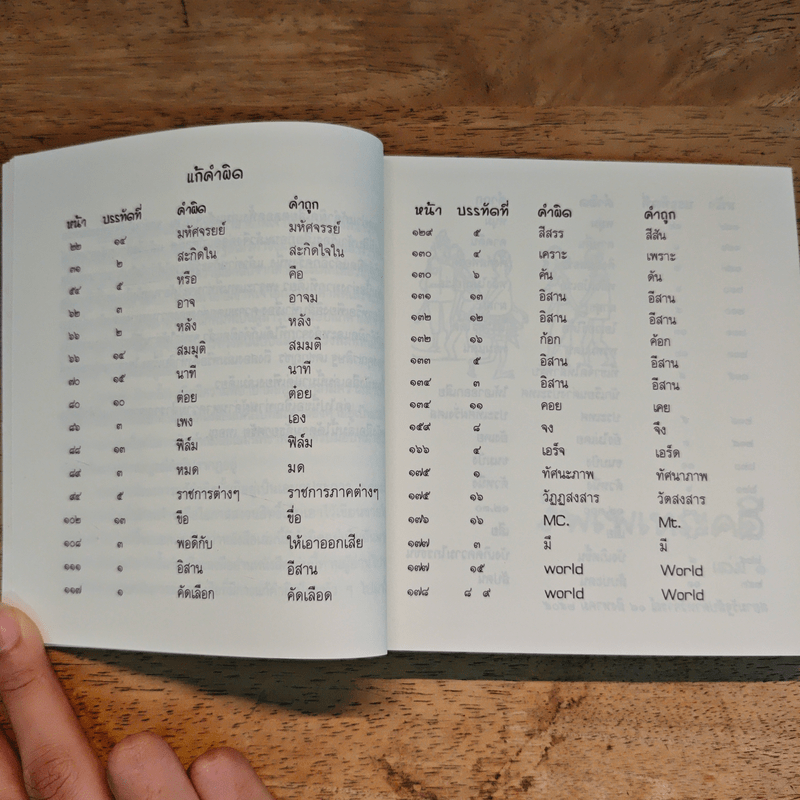 แก้คำผิด
หน้า บรรทัดที่ คำผิด คำถูก
๒๒ ๑๔ มหัศจรยย์ มหัศจรรย์
๓๑ ๒ สะกิดใน สะกิดใจใน
๕๔ ๕ หรือ คือ
๖๒ ๓ อาจ อาจม
๖๖ ๒ หลัง หลัง
๖๖ ๑๔ สมมุติ สมมติ
๗๐ ๑๕ นาที นาที
๘๐ ๑๐ ต่อย ต๋อย
๘๖ ๓ เพง เอง
๘๘ ๑๓ ฟิล์ม ฟิล์ม
๘๙ ๓ หมด มด
๙๔ ๕ ราชการต่างๆ ราชการภาคต่างๆ
๑๐๒ ๑๓ ขือ ขื่อ
๑๐๘ ๓ พอดีกับ ให้เอาออกเสีย
๑๑๑ ๑ อิสาน อีสาน
๑๑๗ ๑ คัดเลือก คัดเลือด
หน้า บรรทัดที่ คำผิด คำถูก
๑๒๙ ๕ สีสรร สีสัน
๑๓๐ ๔ เคราะ เพราะ
๑๓๐ ๖ คัน ดัน
๑๓๑ ๑๓ อิสาน อีสาน
๑๓๒ ๑๒ อิสาน อีสาน
๑๓๒ ๑๖ ก้อก ค้อก
๑๓๓ ๕ อิสาน อีสาน
๑๓๔ ๓ อิสาน อีสาน
๑๓๔ ๑๑ คอย เคย
๑๕๙ ๘ จง จึง
๑๖๖ ๔ เอร็จ เอร็ด
๑๗๕ ๑ ทัศนะภาพ ทัศนาภาพ
๑๗๕ ๑๖ วัฏฏสงสาร วัดสงสาร
๑๗๖ ๑๖ MC. Mt.
๑๗๗ ๓ มี มี
๑๗๗ ๑๕ world World
๑๗๘ ๘ ๙ world World